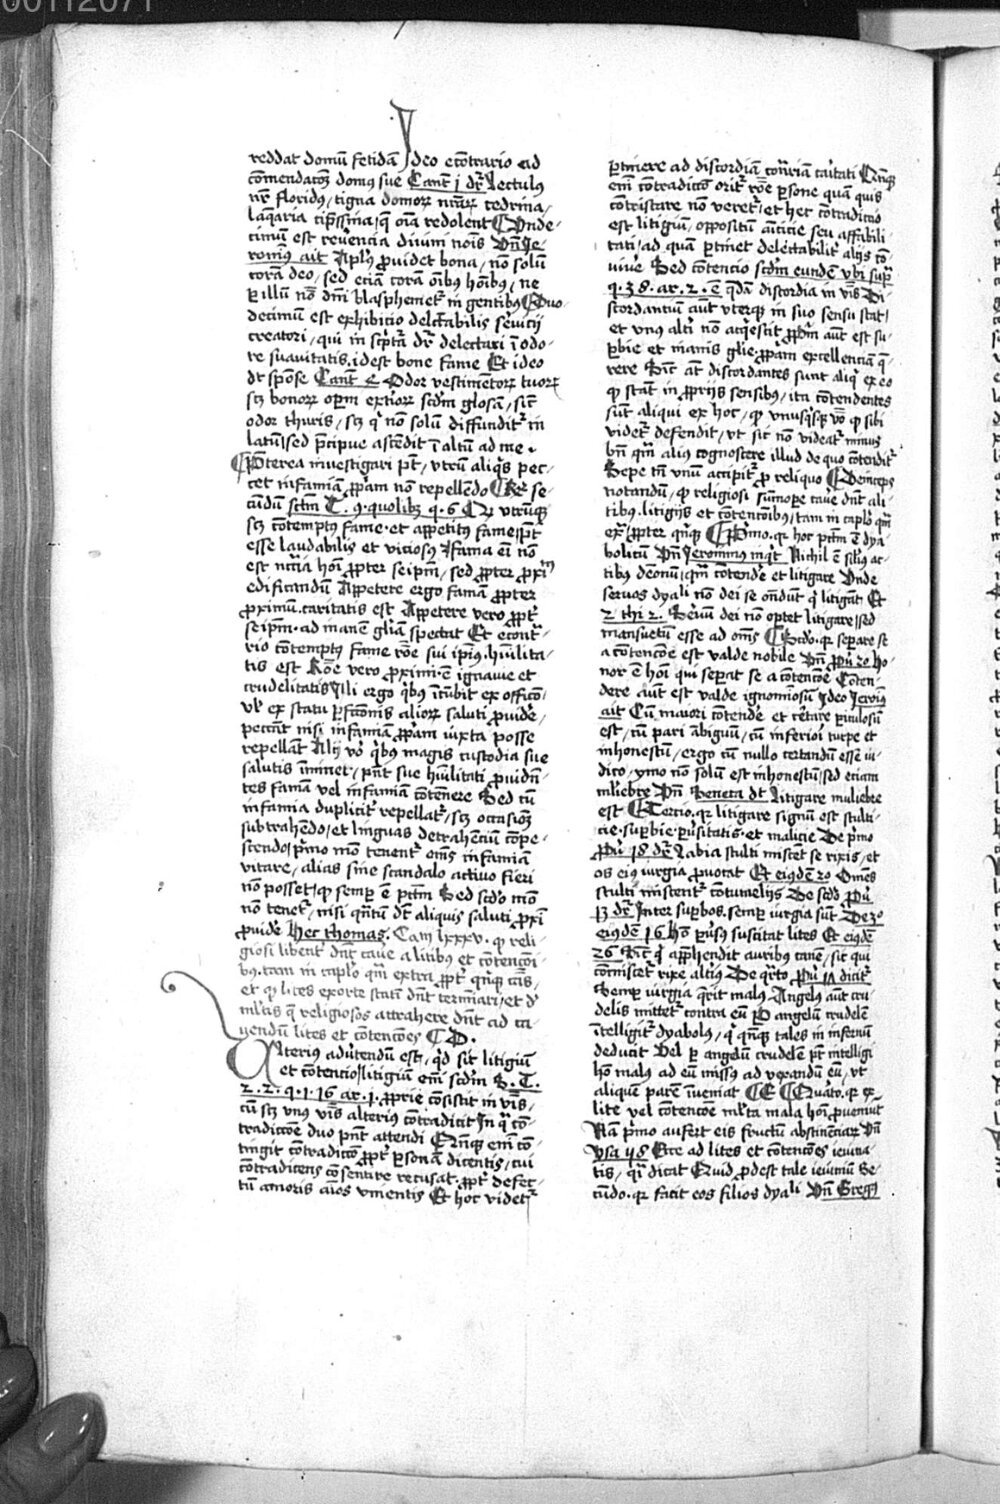 00112071
reddat domū fetidā Ideo econtrario ad
cōmendacōꝫ domꝰ sue Cant̄ i dr̄ lectulꝰ
nr̄ floridꝰ / tigna domoꝝ nr̄aꝝ cedrina /
laq̄aria cip̄ssina / q̄ oīa redolent ¶ Vnde⸗
cimū est reuerencia diuini noīs Vn̄ Je⸗
ronimꝰ ait Apl̄s ꝓuidet bona / nō solū
corā deo / sed eciā corā oībꝰ hoībꝰ / ne
ꝑ illū nō dn̄i blasphemet̄ in gentibꝰ ¶ Duo⸗
decimū est exhibicio delectabilis seruicij
creatori / qui in scͥpt̄a dr̄ delectari ī odo⸗
re suauitatis .i. dest bone fame Et ideo
dt̄ sponse Cant̄ 4 Odor vestimētoꝝ tuoꝝ
scꝫ bonoꝝ opeꝝ exterioꝝ scd̄m glosā / sic̄
odor thuris / scꝫ qͥ nō solū diffundit̄ in
latū sed p̄cipue ascēdit ī altū ad me .
¶ Preterea inuestigari pt̄ / vtrū aliqͥs pec⸗
cet infamiā ꝓpͥam nō repellēdo ¶ Rͬ se⸗
cūdū sctm̄ T. 9. quolibꝫ q. 6 ¶ Qꝛ vtrūqꝫ
scꝫ cōtemptꝰ fame . et appetitꝰ fame / pn̄t
esse laudabilis et viciosꝰ / Fama eī nō
est nc̄cia hoī ꝓpter seipm̄ / sed ꝓpter ꝓxīm
edificandū Appetere ergo famā ꝓpter
ꝓximū . caritatis est Appetere vero ꝓpt̄
seipm̄ . ad inanē gl̄iam spectat Et econt̄⸗
rio cōtemptꝰ fame rōe sui ip̄iꝰ . humilita⸗
tis est Rōe vero ꝓximi . ē ignauie et
crudelitatis Illi ergo qͥbꝰ īcūbit ex officō .
vl̓ ex statu ꝑfectōnis alioꝝ saluti ꝓuidē /
peccāt nisi infamiā ꝓpͥam iuxta posse
repellāt Alij vō qͥbꝰ magis custodia sue
salutis īminet / pn̄t sue humilitati ꝓuidē⸗
tes famā vel infamiā cōtēnere Sed cū
infamia duplicit̄ repellat̄ / scꝫ occasiōꝫ
subtrahēdo / et linguas detrahenciū cōpe⸗
scendo / pͥmo mō tenent̄ oēs infamiā
vitare / alias sine scandalo actiuo fieri
nō posset / qꝫ semp̄ ē pctm̄ Sed scdo mō
nō tenet̄ / nisi qn̄tū dr̄ aliquis saluti ꝓxī
ꝓuidē Hec thomas . Cam lxxxv . ꝙ reli⸗
giosi libent̄ dn̄t cauē a litibꝰ et cōtencōi⸗
bꝰ . tam in capl̄o qͣm extra . ꝓpt̄ qͥnqꝫ cās /
et ꝙ lites exorte statī dn̄t terminari / et dͤ
ml̄tis q̄ religiosos attrahere dn̄t ad ca⸗
uendū lites et cōtencōes ¶ D .
Vlterius aduertendū est / qͥd sit litigiū
et cōtencio / litigiū eī scdm̄ S. T.
2. 2. q. 1 16 ar. 1. ꝓprie cōsistit in vīs /
cū scꝫ vnꝰ vīs alterius cōtradicit In qͣ cō⸗
tradictōe duo pn̄t attendi Qn̄qꝫ eī cō⸗
tingit cōtradictō ꝓpt̄ ꝑsonā dicentis / cui
cōtradicens cōsentire recusat . ꝓpt̄ defec⸗
tū amoris aīos vnientis Et hoc videt̄
ꝑtinere ad discordiā cōtrͣiam caritati Qn̄qꝫ
eī cōtradictō orit̄ rōe ꝑsone quā quis
cōtristare nō veret̄ / et hec cōtradictio
est litigiū / oppositū amicicie seu affabili⸗
tati / ad quā ꝑtinet delectabilit̄ alijs cō⸗
uiuē Sed cōtencio scdm̄ eundē vbi supͣ
q. 38. ar. 2. ē qͣdā discordia in vīs Di⸗
scordantiū aūt vterqꝫ in suo sensu stat /
et vnꝰ alti nō acqͥescit ꝓpͥm aūt est su⸗
ꝑbie et inanis glīe ꝓpͥam excellenciā q̄⸗
rere Sic̄ aūt discordantes sunt aliqͥ ex eo
ꝙ stāt in ꝓprijs sensibꝰ / ita cōtendentes
sūt aliqui ex hoc / ꝙ vnusqͥsqꝫ vō ꝙ sibi
videt̄ defendit / vt sic nō videat̄ minus
bn̄ qͣm aliꝰ cognoscere illud de quo cōtendit̄
Sepe tn̄ vnū accipit̄ ꝓ reliquo ¶ Deinceps
notandū / ꝙ religiosi sūmopere cauē dn̄t ali⸗
tibꝰ . litigijs et cōtencōibꝰ / tam in capl̄o qͣm
exͣ / ꝓpter qͥnqꝫ ¶ Primo . qꝛ hoc pctm̄ ē dya⸗
bolicū Vn̄ Jeronimꝰ inqͥt Nichil ē silīꝰ ac⸗
tibꝰ demonū / qͣm cōtendē et litigare Vnde
seruos dyabli nō dei se on̄dunt qͥ litigāt Et
2 thi 2. Seruū dei nō optet litigare / sed
mansuetū esse ad om̄s ¶ Scdo . qꝛ seꝑare se
a cōtencōe est valde nobile Vn̄ ꝓuͥ 20 Ho⸗
nor ē hoī qui seꝑat se a cōtencōe Cōten⸗
dere aūt est valde ignomiosū Ideo Jeroīꝰ
ait Cū maiori cōtendē et certare ꝑiculosū
est / cū pari ābiguū / cū inferiori turpe et
inhonestū / ergo cū nullo certandū esse iu⸗
dico / ymo nō solū est inhonestū / sed eciam
mul̄iebre Vn̄ Seneca dt̄ Litigare muliebre
est ¶ Tercio . qꝛ litigare signū est stulti⸗
cie . suꝑbie . ꝑuersitatis . et malicie De pͥmo
ꝓuͥ 18 dr̄ Labia stulti miscēt se rixis / et
os eiꝰ iurgia ꝓuocat Et eiusdē 20 Omēs
stulti miscent̄ cōtumelijs De scdo ꝓuͥ
13 dr̄ Inter suꝑbos . semp̄ iurgia sūt De 3o
eiusdē 16 Hō ꝑuersꝰ suscitat lites Et eiusdē
26 Sic̄ qͥ app̄hendit auribꝰ canē / sic qui
cōmiscet̄ rixe alterīꝰ De qͣrto ꝓuͥ 17 dicit̄
Semp̄ iurgia q̄rit malꝰ Angelꝰ aūt cru⸗
delis mittet̄ contra eū Per angelū crudelē
ītelligit̄ dyabolꝰ / qͥ qn̄qꝫ tales in infernū
deducit Vel ꝑ angelū crudelē pt̄ intelligi
hō malꝰ ad eū missꝰ ad vexandū eū / vt
aliquē parē īueniat ¶ E ¶ Quarto . qꝛ ex
lite vel cōtencōe ml̄ta mala hoī ꝓueniūt
Nā pͥmo aufert eis fructū abstinēciaꝝ Vn̄
Ysa 58 Ecce ad lites et cōtencōes ieiuna⸗
tis / qͣ dicat Quid ꝓdest tale ieiuniū Se⸗
cūdo . qꝛ facit eos filios dyabli Vn̄ Gregꝰ